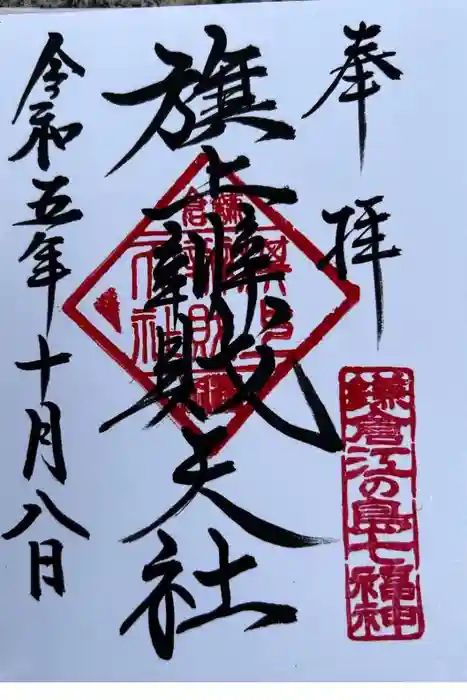 奉拝
鎌倉江の島七福神
旗上辨財天社
令和五年十月八日